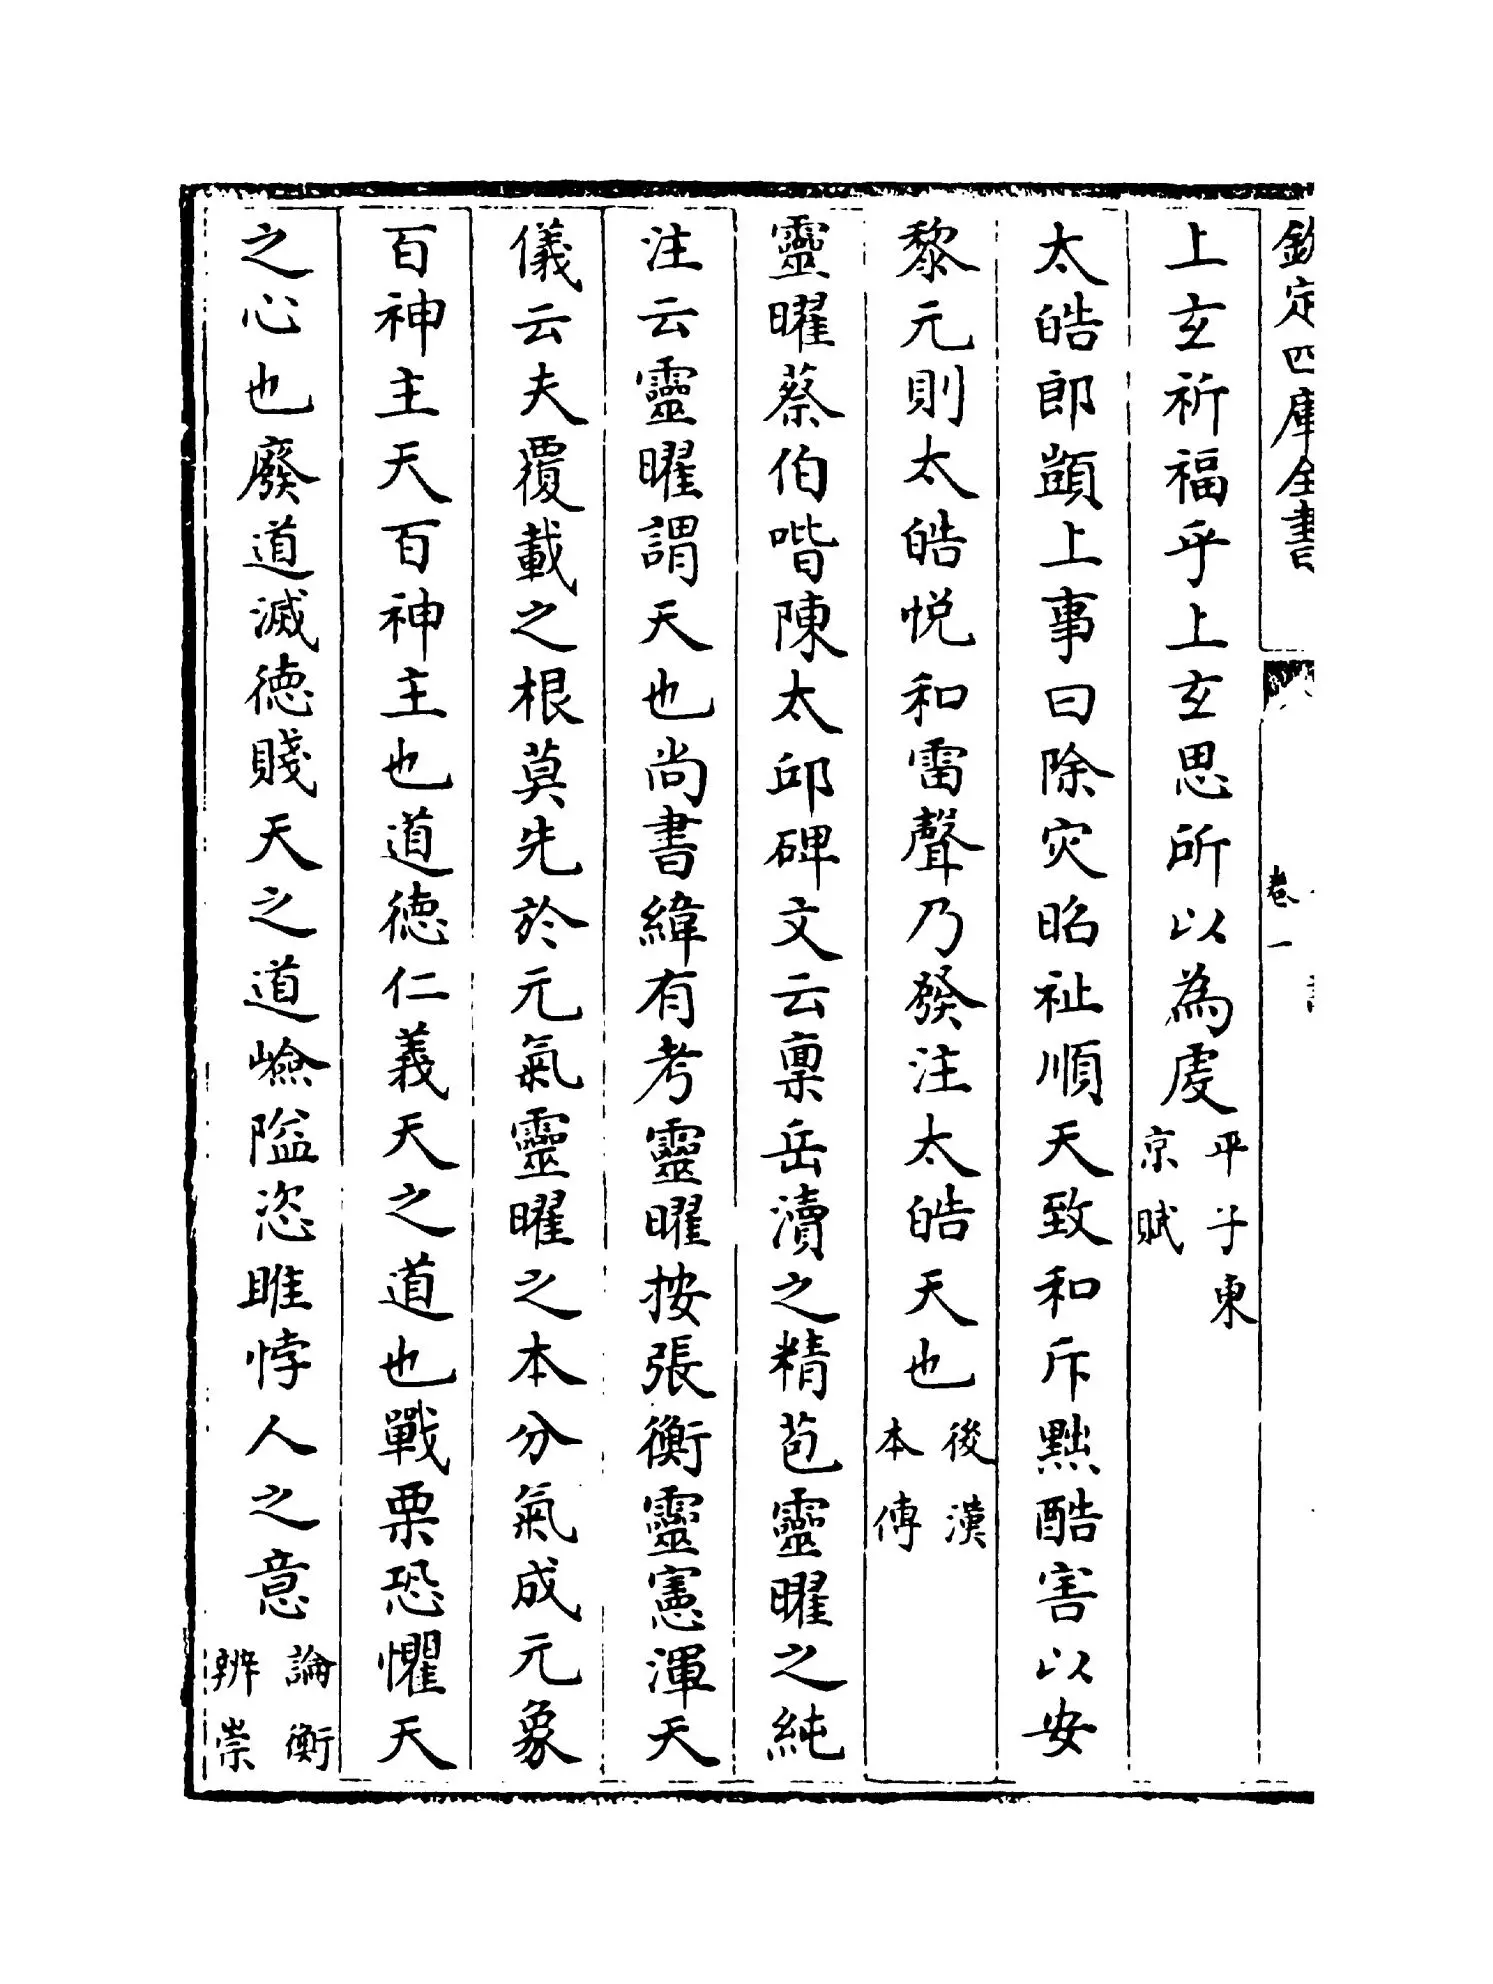 欽定四庫全書
卷一
上玄祈福乎上玄思所以為虔平子東京賦
太皓郎顗上事曰除灾昭祉順天致和斥黜酷害以安
黎元則太皓悦和雷聲乃發注太皓天也後漢本傳
靈曜蔡伯喈陳太邱碑文云禀岳瀆之精苞靈曜之純
注云靈曜謂天也尚書緯有考靈曜按張衡靈憲渾天
儀云夫覆載之根莫先於元氣靈曜之本分氣成元象
百神主天百神主也道德仁義天之道也戰栗恐懼天
之心也廢道滅德賤天之道嶮隘恣睢悖人之意論衡辨崇